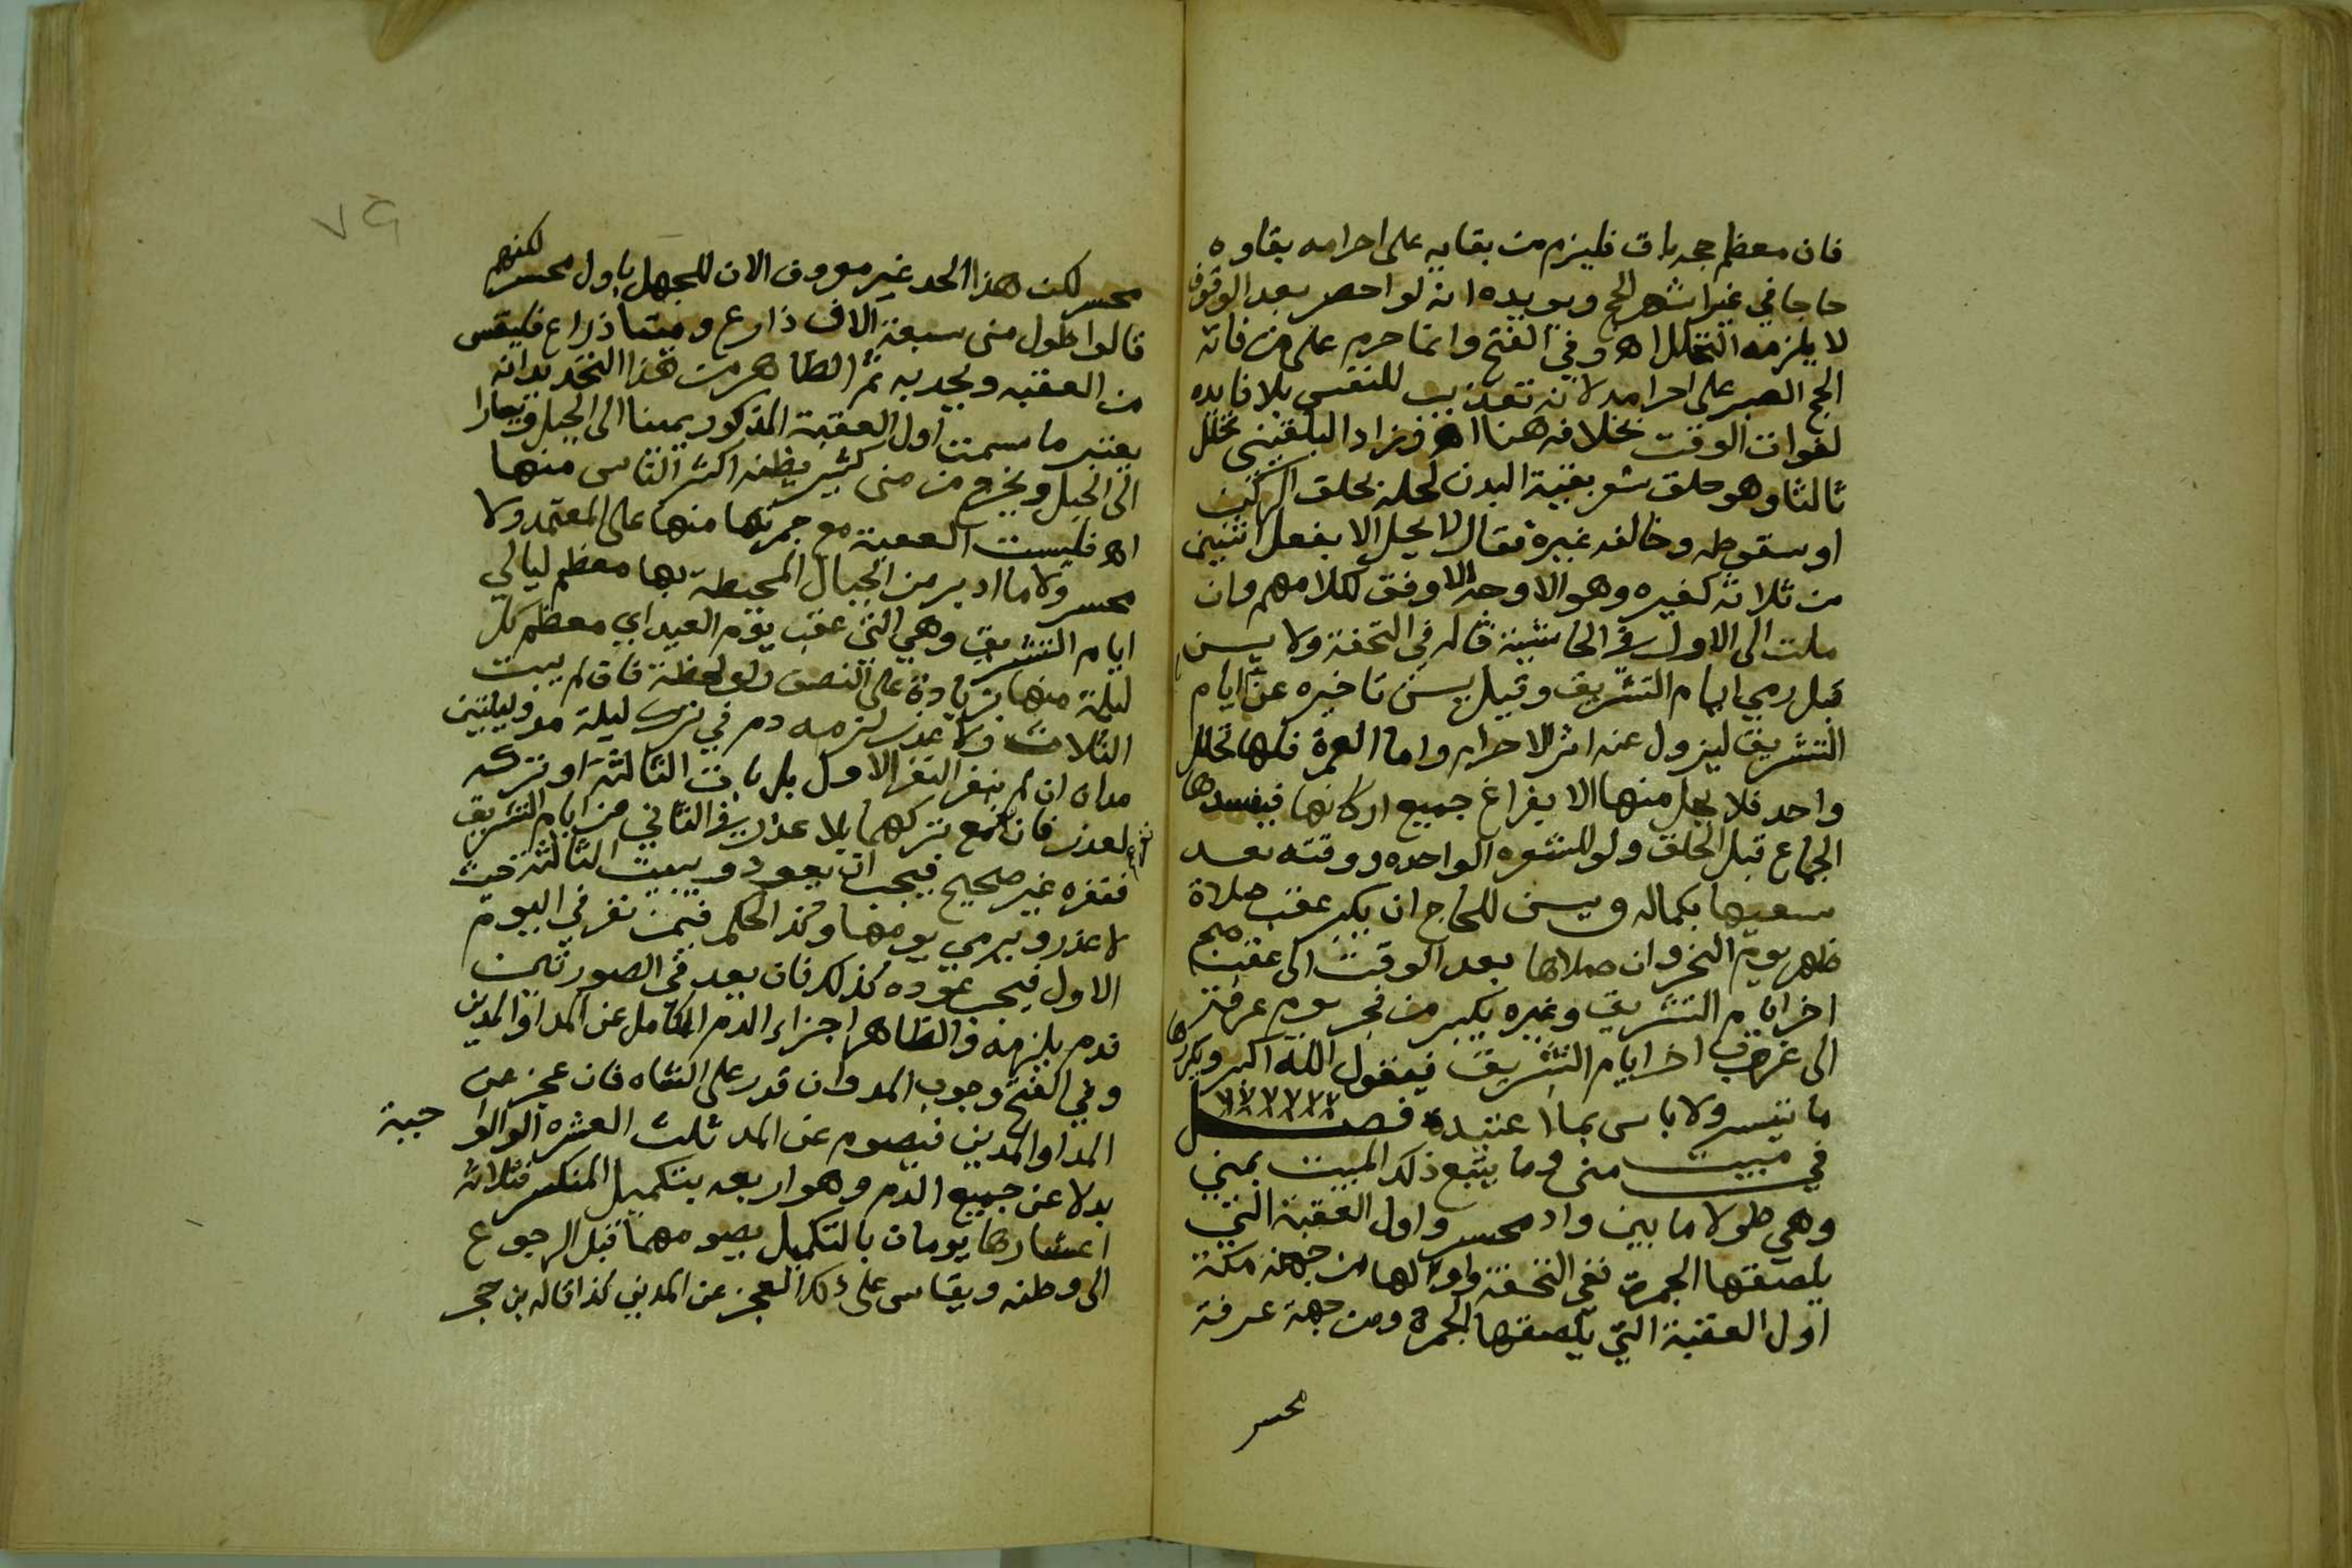 فان معظم حجه بات فليزم من بقايه على احرامه بقاوه
حاجا في غير اشهر الحج ويويده انه لو احصر بعد الوقوف
لا يلزمه التحلل اه وفي الفتح وانما حرم على من فاته
الحج الصبر على احرامه لانه تعذيب للنفس بلا فايده
لفوات الوقت بخلافه هنا اه وزاد البلقيني تحلل
ثالثا وهو حلق شعر بقية البدن لحله بحلق الركن
او سقوطه وخالفه غيره فقال لا يحل الا بفعل اثنين
من ثلاثة كغيره وهو الاوجه الاوفق لكلامهم وان
ملت الى الاول في الحاشية قاله في التحفة ولا يسن
قبل رمي ايام التشريق وقيل يسن تاخيره عن ايام
التشريق ليزول عنه اثر الاحرام واما العمرة فلها تحلل
واحد فلا يحل منها الا بفراغ جميع اركانها فيفسدها
الجماع قبل الحلق ولو للشعره الواحده ووقته بعد
سعيها بكماله ويسن للحاج ان يكبر عقب صلاة
ظهر يوم النحر وان صلاها بعد الوقت الى عقب صبح
اخر ايام التشريق وغيره يكبر من فجر يوم عرفة
الى غروب اخر ايام التشريق فيقول الله اكبر ويكررها
ما تيسر ولا باس بما اعتيده فصل
في مبيت منى وما يتبع ذلك المبيت بمنى
وهي طولا ما بين واد محسر واول العقبة التي
يلصقها الجمرة ففي التحفة واولها من جهة مكة
اول العقبة التي يلصقها الجمرة ومن جهة عرفة
محسر
٧٩
محسر لكن هذا الحد غير معروف الان للجهل باول محسر لكنهم
قالوا طول منى سبعة الاف ذارع وميتا ذراع فليقس
من العقبه ويحد به ثم الظاهر من هذا التحديد انه
يعتبر ما سمت اول العقبة المذكور يمينا الى الجبل ويسارا
الى الجبل ويخرج من منى كثير يظنه اكثر الناس منها
اه فليست العقبة مع جمرتها منها على المعتمد ولا
محسر ولا ما ادبر من الجبال المحيطة بها معظم ليالي
ايام التشريق وهي التي عقب يوم العيد اي معظم كل
ليلة منها بزيادة على النصف ولو لحظة فان لم يبت
الثلاث ولا عذر لزمه دم في ترك ليلة مد وليلتين
مدان ان لم ينفر النفر الاول بل بات الثالثة او تركه
لعذر فان نفر مع تركهما بلا عذر في الثاني من ايام التشريق
فنفره غير صحيح فيجب ان يعود ويبيت الثالثة حيث
لا عذر ويرمي يومها وكذا الحكم فيمن نفر في اليوم
الاول فيجب عوده كذلك فان يعد في الصورتين
فدم يلزمه والظاهر اجزاء الدم الكامل عن المد او المدين
وفي الفتح وجوب المد وان قدر على الشاه فان عجز عن
المد او المدين فيصوم عن المد ثلث العشره الوالوا جبة
بدلا عن جميع الدم وهو اربعه بتكميل المنكسر فثلاثة
اعشارها يومان بالتكميل يصومهما قبل الرجوع
الى وطنه ويقاس على ذلك العجز عن المدين كذا قاله بن حجر